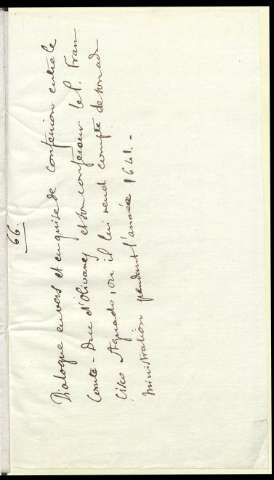 66
Dialogue en vers et en guise de confession entre le
Comte-Duc d'Olivares et son confesseur le P. Fran
cisco Aguado, où il lui rend compte de son ad
ministration pendant l'année 1641.-